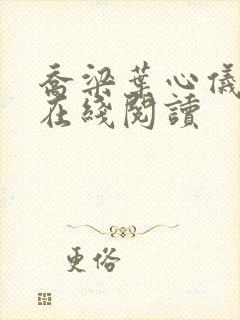 乔梁葉心儀
在綫閱讀
更俗